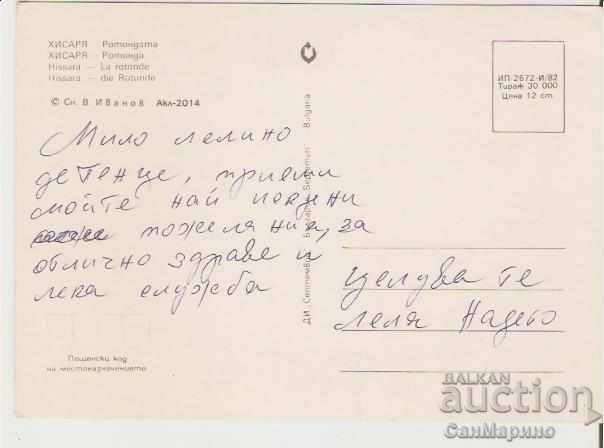 ХИСАРЯ - Ротондата
ХИСАРЯ - Ротонда
Hissara - La rotonde
Hissara - die Rotunde
© Сн. В Иванов Акл-2014
ИП-2672-И/82
Тираж 30 000
Цена 12 ст.
Мило лелино
детенце, приеми
мойте най
пожелания, за
отлично здраве и
лека служба
целува те
леля
Пощенски код
на местоназначението
ДИ „Септември" Bulgaria
BALKAN
auction
СанМарино